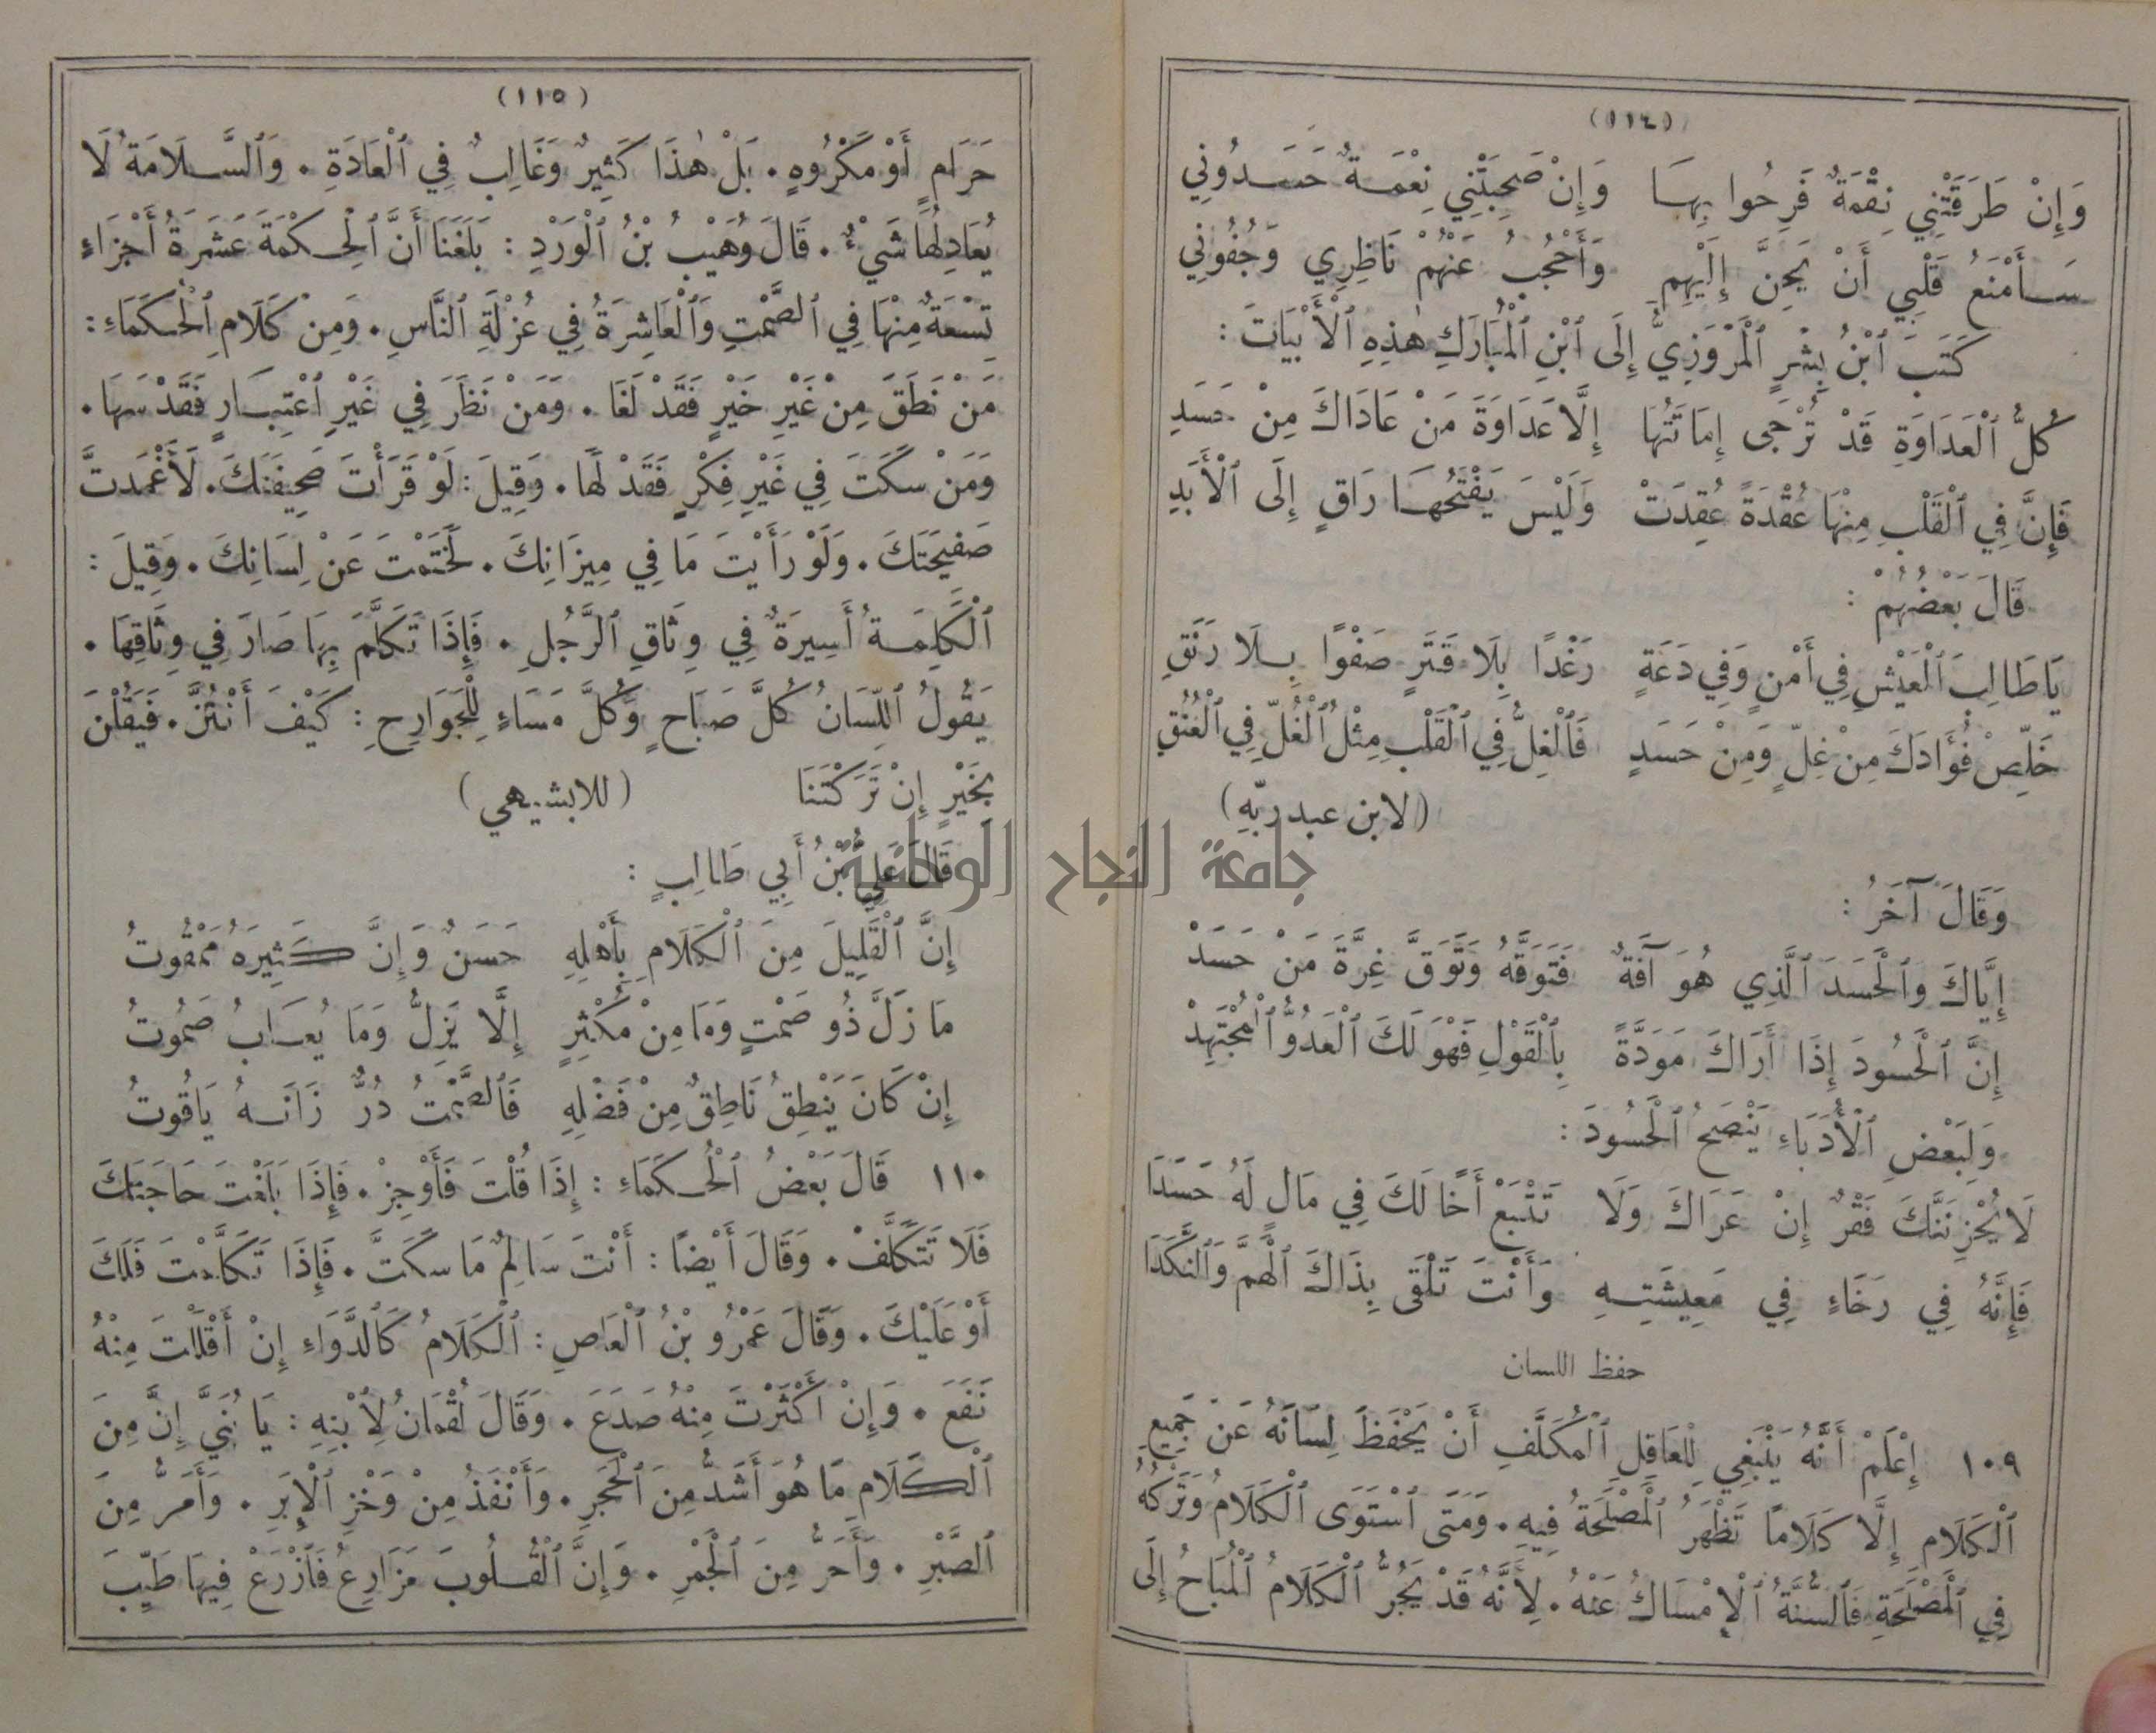 (١١٤)
وَإِنْ طَرَقَتْنِي نِقْمَةٌ فَرِحُوا بِهَا وَإِنْ صَحِبَتْنِي نِعْمَةٌ حَسَدُونِي
سَأَمْنَعُ قَلْبِي أَنْ يَحِنَّ إِلَيْهِمِ وَأَحْجُبُ عَنْهُمْ نَاظِرِي وَجُفُونِي
كَتَبَ ٱبْنُ بِشْرٍ ٱلْمَرْوَزِيُّ إِلَى ٱبْنِ ٱلْمُبَارَكِ هٰذِهِ ٱلْأَبْيَاتَ :
كُلُّ ٱلْعَدَاوَةِ قَدْ تُرْجَى إِمَاتَتُهَا إِلَّا عَدَاوَةَ مَنْ عَادَاكَ مِنْ حَسَدِ
فَإِنَّ فِي ٱلْقَلْبِ مِنْهَا عُقْدَةً عُقِدَتْ وَلَيْسَ يَفْتَحُهَا رَاقٍ إِلَى ٱلْأَبَدِ
قَالَ بَعْضُهُمْ :
يَا طَالِبَ ٱلْعَيْشِ فِي أَمْنٍ وَفِي دَعَةٍ رَغْدًا بِلَا قَتَرٍ صَفْوًا بِلَا رَنَقِ
خَلِّصْ فُؤَادَكَ مِنْ غِلٍّ وَمِنْ حَسَدٍ فَٱلْغِلُّ فِي ٱلْقَلْبِ مِثْلُ ٱلْغُلِّ فِي ٱلْعُنُقِ
(لابن عبد ربّهِ)
وَقَالَ آخَرُ :
إِيَّاكَ وَٱلْحَسَدَ ٱلَّذِي هُوَ آفَةٌ فَتَوَقَّهُ وَتَوَقَّ غِرَّةَ مَنْ حَسَدْ
إِنَّ ٱلْحَسُودَ إِذَا أَرَاكَ مَوَدَّةً بِٱلْقَوْلِ فَهْوَ لَكَ ٱلْعَدُوُّ ٱلْمُجْتَهِدْ
وَلِبَعْضِ ٱلْأُدَبَاءِ يَنْصَحُ ٱلْحَسُودَ :
لَا يُحْزِنَنَّكَ فَقْرٌ إِنْ عَرَاكَ وَلَا تَتْبَعْ أَخًا لَكَ فِي مَالٍ لَهُ حَسَدَا
فَإِنَّهُ فِي رَخَاءٍ فِي مَعِيشَتِهِ وَأَنْتَ تَلْقَى بِذَاكَ ٱلْهَمَّ وَٱلنَّكَدَا
حفظ اللسان
١٠٩ إِعْلَمْ أَنَّهُ يَنْبَغِي لِلْعَاقِلِ ٱلْمُكَلَّفِ أَنْ يَحْفَظَ لِسَانَهُ عَنْ جَمِيعِ
ٱلْكَلَامِ إِلَّا كَلَامًا تَظْهَرُ ٱلْمَصْلَحَةُ فِيهِ. وَمَتَى ٱسْتَوَى ٱلْكَلَامُ وَتَرْكُهُ
فِي ٱلْمَصْلَحَةِ فَٱلسُّنَّةُ ٱلْإِمْسَاكُ عَنْهُ. لِأَنَّهُ قَدْ يَجُرُّ ٱلْكَلَامُ ٱلْمُبَاحُ إِلَى
(١١٥)
حَرَامٍ أَوْ مَكْرُوهٍ. بَلْ هٰذَا كَثِيرٌ وَغَالِبٌ فِي ٱلْعَادَةِ. وَٱلسَّلَامَةُ لَا
يُعَادِلُهَا شَيْءٌ. قَالَ وُهَيْبُ بْنُ ٱلْوَرْدِ : بَلَغَنَا أَنَّ ٱلْحِكْمَةَ عَشَرَةُ أَجْزَاءٍ
تِسْعَةٌ مِنْهَا فِي ٱلصَّمْتِ وَٱلْعَاشِرَةُ فِي عُزْلَةِ ٱلنَّاسِ. وَمِنْ كَلَامِ ٱلْحُكَمَاءِ :
مَنْ نَطَقَ مِنْ غَيْرِ خَيْرٍ فَقَدْ لَغَا. وَمَنْ نَظَرَ فِي غَيْرِ ٱعْتِبَارٍ فَقَدْ سَهَا.
وَمَنْ سَكَتَ فِي غَيْرِ فِكْرٍ فَقَدْ لَهَا. وَقِيلَ : لَوْ قَرَأْتَ صَحِيفَتَكَ. لَأَغْمَدتَّ
صَفِيحَتَكَ. وَلَوْ رَأَيْتَ مَا فِي مِيزَانِكَ. لَخَتَمْتَ عَنْ لِسَانِكَ. وَقِيلَ :
ٱلْكَلِمَةُ أَسِيرَةٌ فِي وِثَاقِ ٱلرَّجُلِ. فَإِذَا تَكَلَّمَ بِهَا صَارَ فِي وِثَاقِهَا.
يَقُولُ ٱللِّسَانُ كُلَّ صَبَاحٍ وَكُلَّ مَسَاءٍ لِلْجَوَارِحِ : كَيْفَ أَنْتُنَّ. فَيَقُلْنَ
بِخَيْرٍ إِنْ تَرَكْتَنَا (للابشيهي)
قَالَ عَلِيُّ بْنُ أَبِي طَالِبٍ :
جامعة النجاح الوطنية
إِنَّ ٱلْقَلِيلَ مِنَ ٱلْكَلَامِ بِأَهْلِهِ حَسَنٌ وَإِنَّ كَثِيرَهُ مَمْقُوتُ
مَا زَلَّ ذُو صَمْتٍ وَمَا مِنْ مُكْثِرٍ إِلَّا يَزِلُّ وَمَا يُعَابُ صَمُوتُ
إِنْ كَانَ يَنْطِقُ نَاطِقٌ مِنْ فَضْلِهِ فَٱلصَّمْتُ دُرٌّ زَانَهُ يَاقُوتُ
١١٠ قَالَ بَعْضُ ٱلْحُكَمَاءِ : إِذَا قُلْتَ فَأَوْجِزْ. فَإِذَا بَلَغْتَ حَاجَتَكَ
فَلَا تَتَكَلَّفْ. وَقَالَ أَيْضًا : أَنْتَ سَالِمٌ مَا سَكَتَّ. فَإِذَا تَكَلَّمْتَ فَلَكَ
أَوْ عَلَيْكَ. وَقَالَ عَمْرُو بْنُ ٱلْعَاصِ : ٱلْكَلَامُ كَٱلدَّوَاءِ إِنْ أَقْلَلْتَ مِنْهُ
نَفَعَ. وَإِنْ أَكْثَرْتَ مِنْهُ صَدَعَ. وَقَالَ لُقْمَانُ لِٱبْنِهِ : يَا بُنَيَّ إِنَّ مِنَ
ٱلْكَلَامِ مَا هُوَ أَشَدُّ مِنَ ٱلْحَجَرِ. وَأَنْفَذُ مِنْ وَخْزِ ٱلْإِبَرِ. وَأَمَرُّ مِنَ
ٱلصَّبْرِ. وَأَحَرُّ مِنَ ٱلْجَمْرِ. وَإِنَّ ٱلْقُلُوبَ مَزَارِعُ فَٱزْرَعْ فِيهَا طَيِّبَ